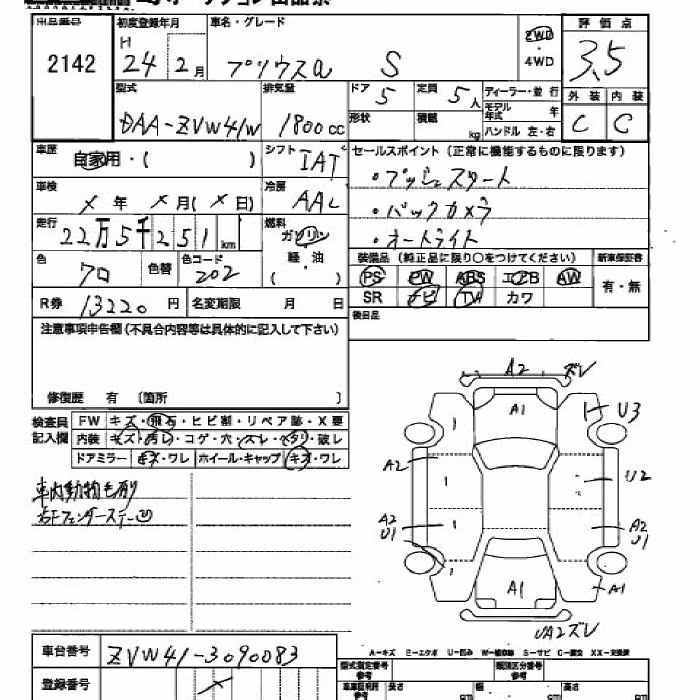 出品番号 初度登録年月 車名・グレード 評価点
2142 H 24年 2月 プリウスα S 2WD・4WD 3.5
型式 排気量 ドア 5 定員 5人 ディーラー・並行 外装 内装
DAA-ZVW41W 1800cc 形状 積載 kg モデル年式 年 C C
ハンドル 左・右
車歴 自家用・( ) シフト IAT セールスポイント(正常に機能するものに限ります)
車検 X年 X月(X日) 冷房 AAC ・プッシュスタート
走行 22万5千251km 燃料 ガソリン ・バックカメラ
軽・油 ・オートライト
色 クロ 色替 色コード 202 ( ) 装備品(純正品に限り○をつけてください) 新車保証書
PS PW ABS エアB AW 有・無
R券 13220円 名変期限 月 日 SR ナビ TV カワ
注意事項申告欄(不具合内容等は具体的に記入して下さい) 後日品
修復歴 有 〔箇所 〕
検査員記入欄 FW キズ・飛石・ヒビ割・リペア跡・X要
内装 キズ・汚レ・コゲ・穴・スレ・ヘタリ・破レ
ドアミラー キズ・ワレ ホイール・キャップ キズ・ワレ
車内動物毛有り
右Fフェンダーステー凹
A2 ズレ
A1 U3
A2 U2
A2 U1 A2 U1
A1 A1
UA2ズレ
A-キズ E-エクボ U-凹み W-補修跡 S-サビ C-腐食 XX-交換済
車台番号 ZVW41-3090083 型式指定番号 類別区分番号
登録番号 X 長さ 幅 高さ